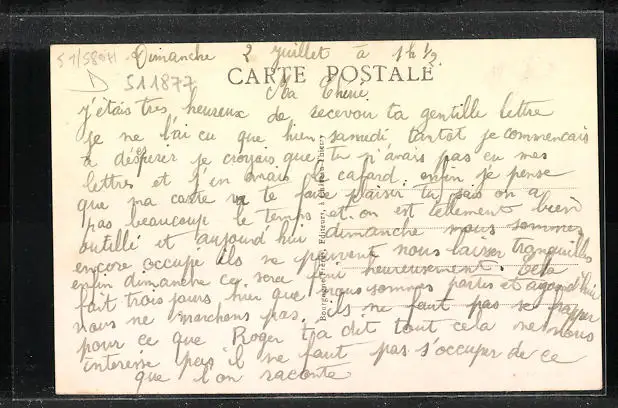 51/580H Dimanche 2 juillet à 1h 1/2
D 511877
CARTE POSTALE
Ma Cherie
j'étais très heureux de recevoir ta gentille lettre
je ne l'ai eu que hier samedi tantot je commencais
a désperer je croyais que tu n'avais pas eu mes
lettres et j'en avais le cafard. enfin je pense
que ma carte va te faire plaisir tu sais on a
pas beaucoup le temps et on est tellement bien
outillé et aujourd'hui dimanche nous sommes
encore occupe ils ne peuvent nous laisser tranquilles
enfin dimanche ce sera fini heureusement. Cela
fait trois jours hier que nous sommes parties et aujourd'hui
nous ne marchons pas. ils ne faut pas se frapper
pour ce que Roger t'a dit tout cela ne nous
interesse pas il ne faut pas s'occuper de ce
que l'on raconte
Bourgogne Frères, Editeurs, à Château-Thierry